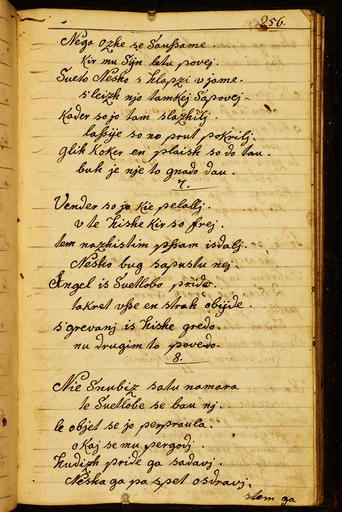 256.
Nigo Ozhe se Saussame.
kir mu Sijn letu povej.
Sveto Nesko s hlapzi vjame.
sleizh njo tamkej Sapovej-
Kader so jo tam slazhilj.
lassje so no prut pokrilj.
glih koker en plaish so do tau.
buh je nje to gnado dau.
7.
Vender so jo kie pelallj.
v te hishe kir so frej.
tem nazhistim pssam isdalj.
Nesko bug sapustu nej-
Angel is Svetlobo pride.
takret vsse en strah obijde.
s'grevanj is hishe gredo.
nu drugim to povedo-
8.
Nie Snubiz satu namara
te Svetlobe se bau nj.
le objet se jo perpraula.
okaj se mu pergodj.
hudizh pride ga sadavj.
Neshka ga pa spet osdravj.
stem ga